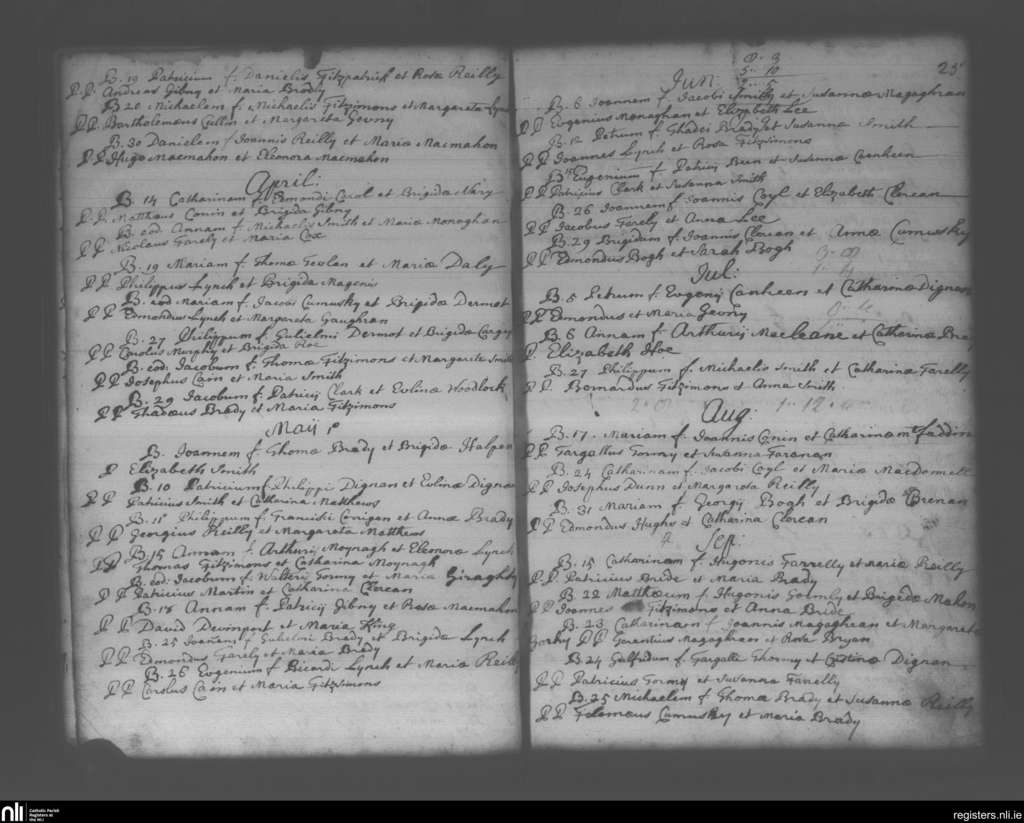 B. 19 Patricium f. Danielis Fitzpatrick et Rosa Reilly
P P. Andreas Gibny et Maria Brody
B 20 Michaelem f. Michaelis Fitzimons et Margareta
P P. Bartholemaeus Cullin et Margarita Gevny
B. 30 Danielem f Joannis Reilly et Maria Macmahon
P P Hugo Macmahon et Eleonora Macmahon
April:
B. 14 Catharinam f. Edmondi Carol et Brigida Nary
P. P. Matthaus Conin et Brigida Gibny
B. eod. Annam f. Michaelis Smith et Maria Monaghan
P P Nicolaus Farely et Maria Cox
B. 19 Mariam f. Thomae Teolan et Mariae Daly
P P Philippus Lynch et Brigida Magenis
B. eod Mariam f. Jacobi Cumusky et Brigidae Dermot
P P Edmondus Lynch et Margareta Gaughran
B. 27 Philippum f. Gulielmi Dermot et Brigidae
P P Carolus Murphy et Brigida Hoe
B. eod: Jacobum f. Thomae Fitzimons et Margareta Smith
P P Josephus Cain et Maria Smith
B. 29 Jacobum f. Patricij Clark et Evlinae Woodlock
P P Thadaeus Brady et Maria Fitzimons
Maij
B. Joannem f Thomae Brady et Brigidae Halpen
P Elizabeth Smith
B. 10 Patricium f. Philippi Dignan et Evlinae Dignan
P P Patricius Smith et Catharina Matthews
B. 11 Philippum f. Francisci Corrigan et Annae Brady
P P Georgius Reilly et Margareta Matthews
B. 15 Annam f. Arthurij Moynagh et Eleonorae Lynch
P P Thomas Fitzimons et Catharina Moynagh
B. eod: Jacobum f. Walteri Tormy et Maria Giraghty
P P Patricius Martin et Catharina Clorean
B. 18 Annam f. Patricij Gibny et Rosae Macmahon
P P David Devinport et Maria King
B. 25 Joanem f. Gulielmi Brady et Brigidae Lynch
P P Edmondus Farely et Maria Brady
B. 26 Evgenium f. Ricardi Lynch et Maria Reilly
P P Carolus Cain et Maria Fitzsimons
25
Jun:
B. 6 Joannem f. Jacobi Smith et Susannae Magaghran
P P Evgenius Monaghan et Elizabeth Lee
B. 12 Petrum f. Thadei Brady et Susanna Smith
P P Joannes Lynch et Rosa Fitzimons
B. 15 Eugenium f. Patricij Brin et Susanna Canheen
P P Patricius Clark et Susanna Smith
B. 26 Joannem f Joannis Coyl et Elizabeth Clorean
P P Jacobus Farely et Anna Lee
B. 29 Brigidam f. Joannis Clorean et Annae Cumusky
P P Edmondus Bogh et Sarah Bogh
Jul:
B. 5 Petrum f. Evgenij Canheen et Catharina Dignan
P P Edmondus et Maria Gevny
B. 6 Annam f. Arthurij Macleane et Catharinae
P. Elizabeth Hoe
B. 27 Philippum f. Michaelis Smith et Catharinae Farelly
P P. Bernardus Fitzimons et Anna Smith
Aug:
B. 17. Mariam f. Joannis Conin et Catharinam
P P Targallus Tormy et Susanna Faranan
B. 24 Catharinam f. Jacobi Coyl et Mariae MacDonnell
P P Josephus Dunn et Margareta Reilly
B. 31 Mariam f. Georgij Bogh et Brigidae Brenan
P P Edmondus Hughs et Catharina Clorean
Sep:
B. 15 Catharinam f. Hugonis Farrelly et Maria Reilly
P P. Patricius Brede et Maria Brady
B. 22 Matthaeum f. Hugonis Gormly et Brigidae Mahon
P P Joannes Fitzimons et Anna Bride
B. 23 Catharinam f. Joannis Magaghean et Margareta
P P Garentius Magaghean et Rosa Bryan
B. 24 Galfridum f. Fargalli Thormy et Cristinae Dignan
P P Patricius Tormy et Susanna Farelly
B. 25 Michaelem f. Thomae Brady et Susannae Reilly
P P Felemeus Cumusky et Maria Brady
nli
Catholic Parish
Registers at
the NLI
registers.nli.ie